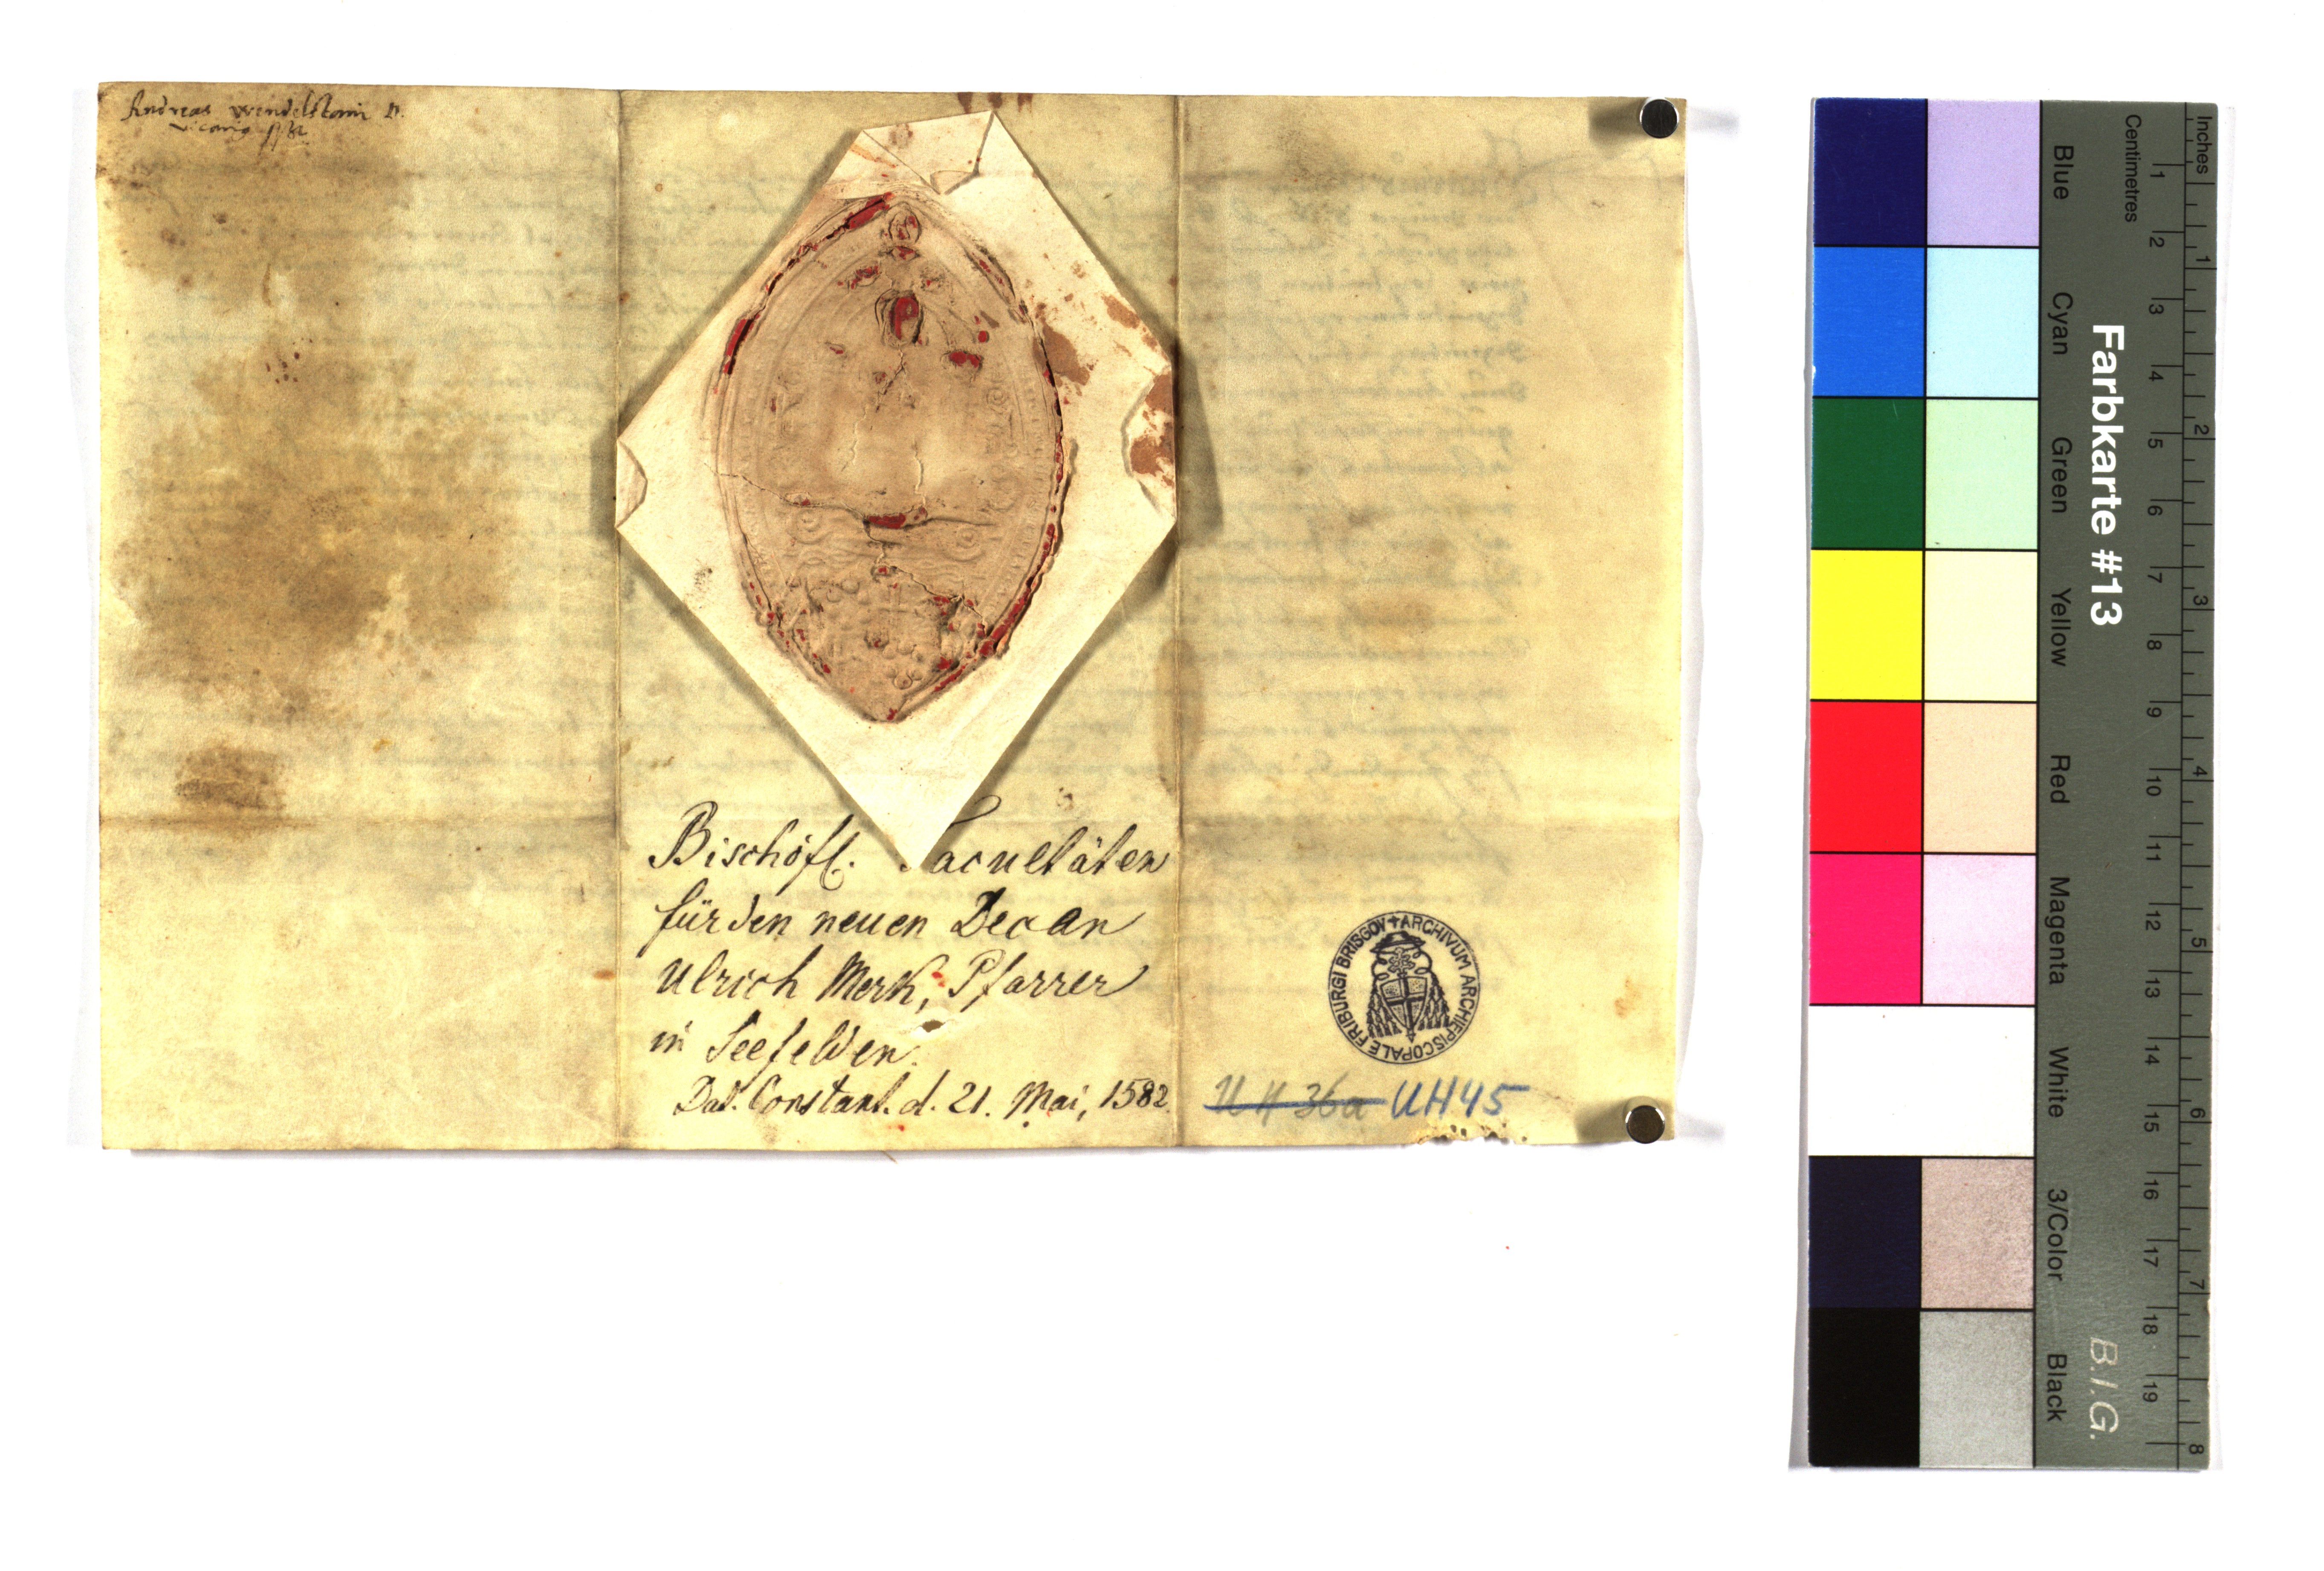 Andreas Wendelstain
Bischöfl. Facultäten
für den neuen Decan
Ulrich Merk, Pfarrer
in Seefelden.
Dat. Constant. d. 21. Mai, 1582.
ARCHIVUM ARCHIEPISCOPALE FRIBURGI BRISGOV +
UH 36a UH45
Farbkarte #13
B.I.G.
Inches
Centimetres
Blue
Cyan
Green
Yellow
Red
Magenta
White
3/Color
Black
1 2 3 4 5 6 7 8 9 10 11 12 13 14 15 16 17 18 19
1 2 3 4 5 6 7 8